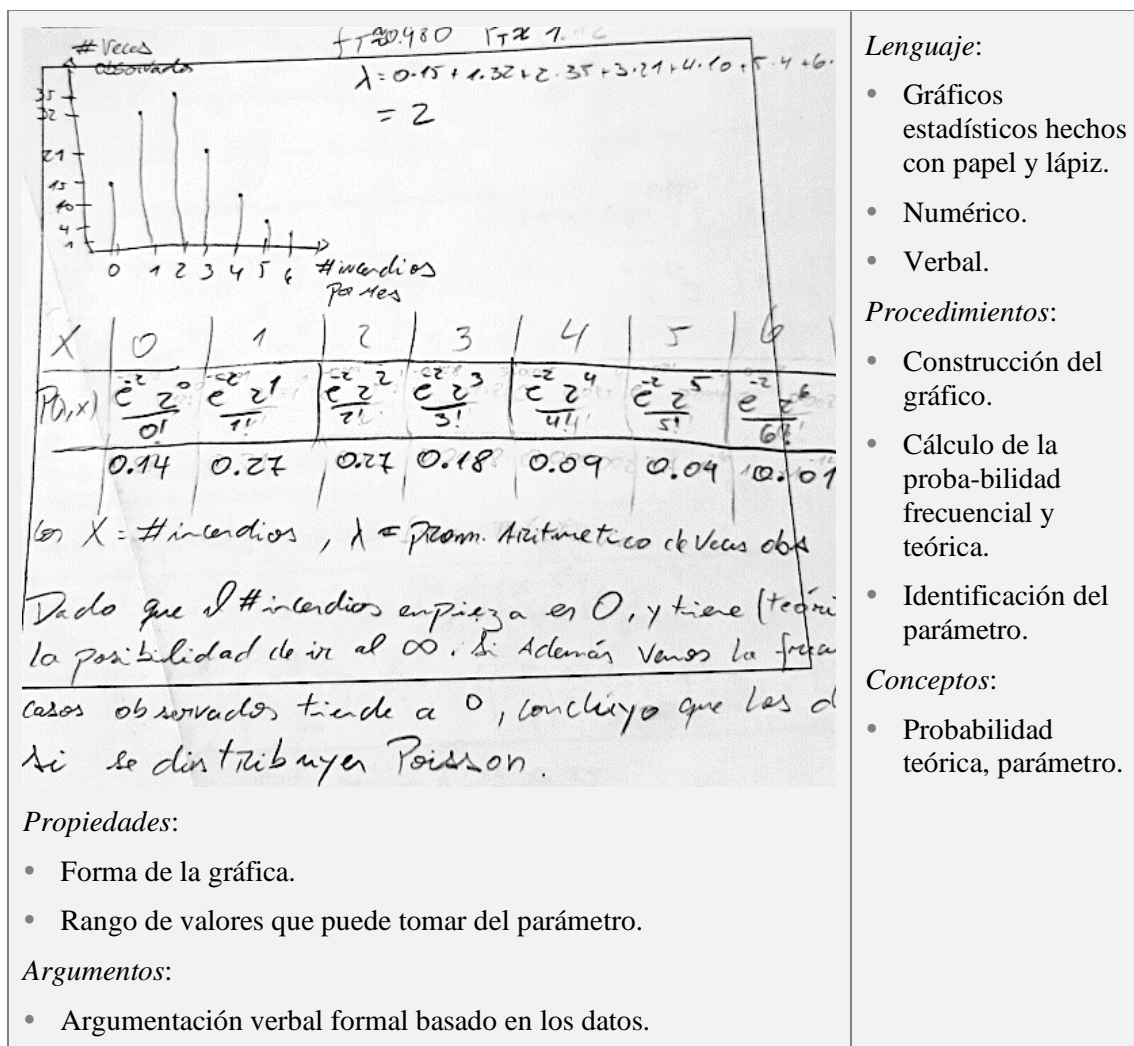 # Veces
observados
fT≈0.980 rT≈ 1.
λ = 0·15 + 1·32 + 2·35 + 3·21 + 4·10 + 5·4 + 6·
= 2
35
32
21
15
10
4
1
0 1 2 3 4 5 6 #incendios
Por Mes
X 0 1 2 3 4 5 6
P(λ,x) e^-2 2^0 / 0! e^-2 2^1 / 1! e^-2 2^2 / 2! e^-2 2^3 / 3! e^-2 2^4 / 4! e^-2 2^5 / 5! e^-2 2^6 / 6!
0.14 0.27 0.27 0.18 0.09 0.04 0.01
con X = #incendios , λ = Prom. Aritmetico de Veces obs
Dado que el #incendios empieza en 0, y tiene (teóri
la posibilidad de ir al ∞. Si Además Vemos la frecu
casos observados tiende a 0, concluyo que los d
si se distribuyen Poisson.
Propiedades:
• Forma de la gráfica.
• Rango de valores que puede tomar del parámetro.
Argumentos:
• Argumentación verbal formal basado en los datos.
Lenguaje:
• Gráficos
estadísticos hechos
con papel y lápiz.
• Numérico.
• Verbal.
Procedimientos:
• Construcción del
gráfico.
• Cálculo de la
proba-bilidad
frecuencial y
teórica.
• Identificación del
parámetro.
Conceptos:
• Probabilidad
teórica, parámetro.